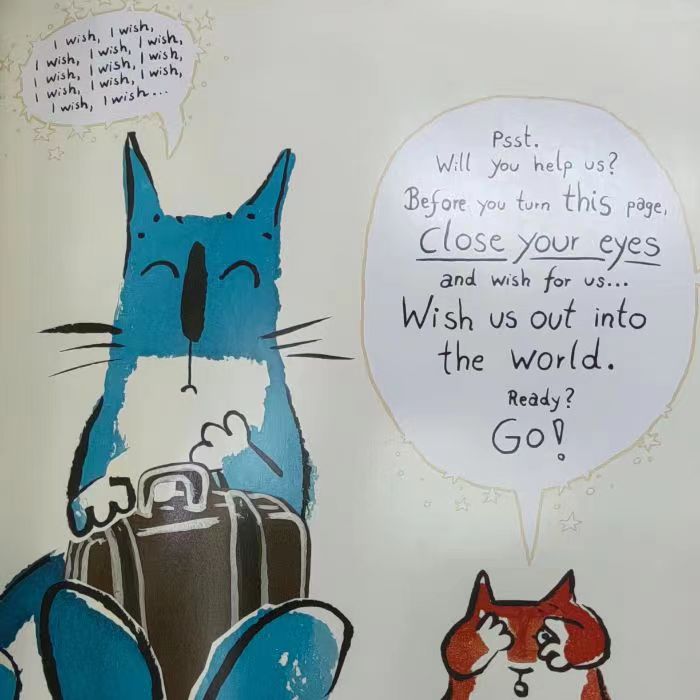 I wish, I wish,
I wish, I wish, I wish,
I wish, I wish, I wish,
I wish, I wish, I wish,
I wish, I wish...
Psst.
Will you help us?
Before you turn this page,
Close your eyes
and wish for us...
Wish us out into
the world.
Ready?
Go!